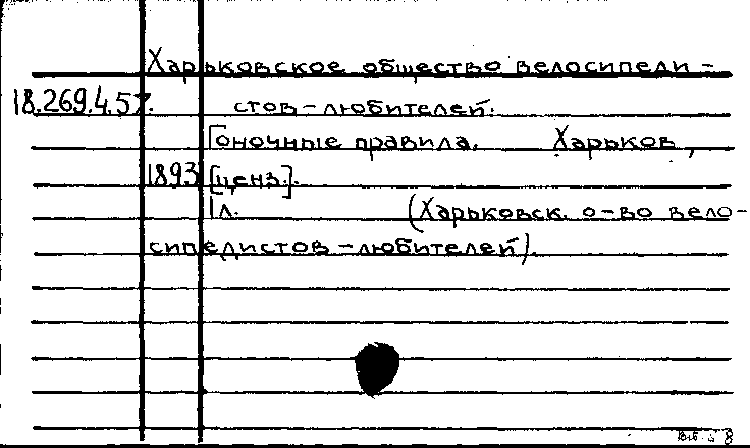 Харьковское общество велосипеди-
18.269.4.57. стов-любителей.
Гоночные правила. Харьков,
1893 [ценз.].
1л. (Харьковск. о-во вело-
сипедистов-любителей).